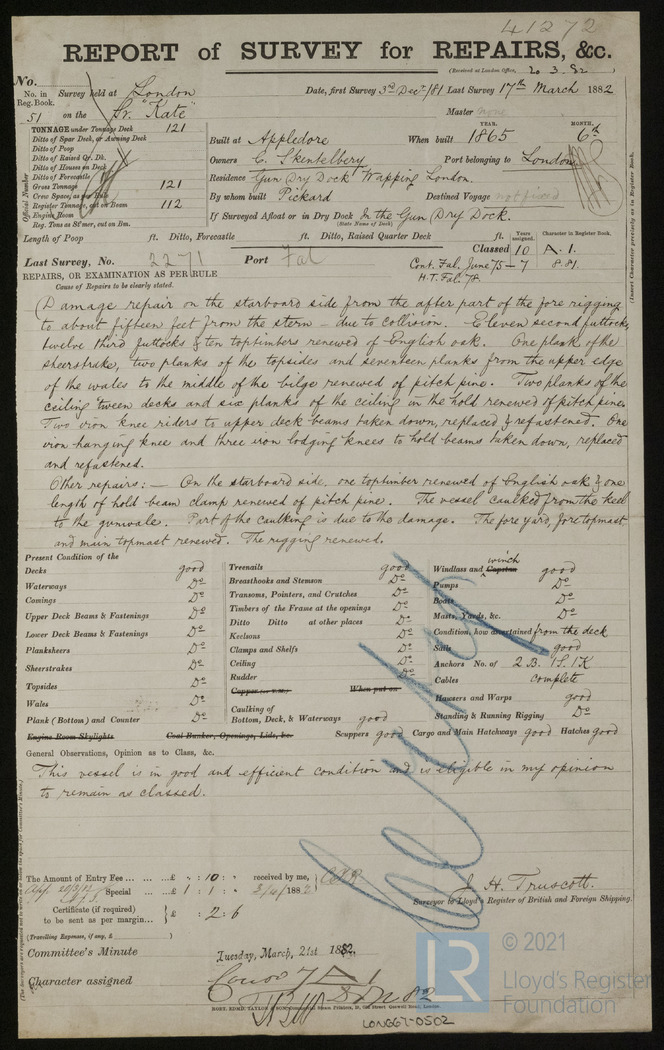 41272
REPORT of SURVEY for REPAIRS, &c.
(Received at London Office, 20.3.82)
No.
No. in Reg. Book. Survey held at London Date, first Survey 3rd Decr /81 Last Survey 17th March 1882
51 on the Sr. "Kate" Master
TONNAGE under Tonnage Deck 121
Ditto of Spar Deck, or Awning Deck
Ditto of Poop
Ditto of Raised Qr. Dk.
Ditto of Houses on Deck
Ditto of Forecastle
Gross Tonnage 121
Crew Space, as per Rule
Register Tonnage, cut on Beam 112
Engine Room
Reg. Tons as St'mer, cut on Bm.
Official Number
YEAR. MONTH.
Built at Appledore When built 1865 6th
Owners C. Skentelbery Port belonging to London
Residence Gun Dry Dock Wapping London.
By whom built Pickard Destined Voyage not fixed
If Surveyed Afloat or in Dry Dock In the Gun Dry Dock.
(State Name of Dock)
Length of Poop ft. Ditto, Forecastle ft. Ditto, Raised Quarter Deck ft.
Years assigned. Character in Register Book.
Classed 10 A.1.
Last Survey, No. 2271 Port Fal
Cont. Fal. June 75-7 8.81.
H.T. Fal. 78.
(Insert Character precisely as in Register Book.
REPAIRS, OR EXAMINATION AS PER RULE
Cause of Repairs to be clearly stated.
(Damage repair on the starboard side from the after part of the fore rigging
to about fifteen feet from the stern - due to collision. Eleven second futtocks,
twelve third futtocks & ten toptimbers renewed of English oak. One plank of the
sheerstrake, two planks of the topsides and seventeen planks from the upper edge
of the wales to the middle of the bilge renewed of pitch pine. Two planks of the
ceiling tween decks and six planks of the ceiling in the hold renewed of pitch pine.
Two iron knee riders to upper deck beams taken down, replaced & refastened. One
iron hanging knee and three iron lodging knees to hold beams taken down, replaced
and refastened.
Other repairs: - On the starboard side, one toptimber renewed of English oak & one
length of hold beam clamp renewed of pitch pine. The vessel caulked from the keel
to the gunwale. Part of the caulking is due to the damage. The fore yard, fore topmast
and main topmast renewed. The rigging renewed.
Present Condition of the
Decks good
Waterways Do
Comings Do
Upper Deck Beams & Fastenings Do
Lower Deck Beams & Fastenings Do
Planksheers Do
Sheerstrakes Do
Topsides Do
Wales Do
Plank (Bottom) and Counter Do
Engine Room Skylights Coal Bunker, Openings, Lids, &c.
Treenails good
Breasthooks and Stemson Do
Transoms, Pointers, and Crutches Do
Timbers of the Frame at the openings Do
Ditto Ditto at other places Do
Keelsons Do
Clamps and Shelfs Do
Ceiling Do
Rudder Do
Copper (or Y.M.) When put on
Caulking of
Bottom, Deck, & Waterways good
winch
Windlass and Capstan good
Pumps Do
Boats Do
Masts, Yards, &c. Do
Condition, how ascertained from the deck
Sails good
Anchors No. of 2 B. 1 S. 1 K
Cables complete
Hawsers and Warps good
Standing & Running Rigging Do
Scuppers good Cargo and Main Hatchways good Hatches good
General Observations, Opinion as to Class, &c.
This vessel is in good and efficient condition and is eligible in my opinion
to remain as classed.
The Amount of Entry Fee ... £ " : 10 : " received by me,
Special ... £ 1 : 1 : " 3/4/1882
Certificate (if required)
to be sent as per margin... £ : 2 : 6
(Travelling Expenses, if any, £
J. H. Truscott.
Surveyor to Lloyd's Register of British and Foreign Shipping.
Committee's Minute Tuesday, March, 21st 1882.
Character assigned
LON667-0502
LR
© 2021
Lloyd's Register
Foundation